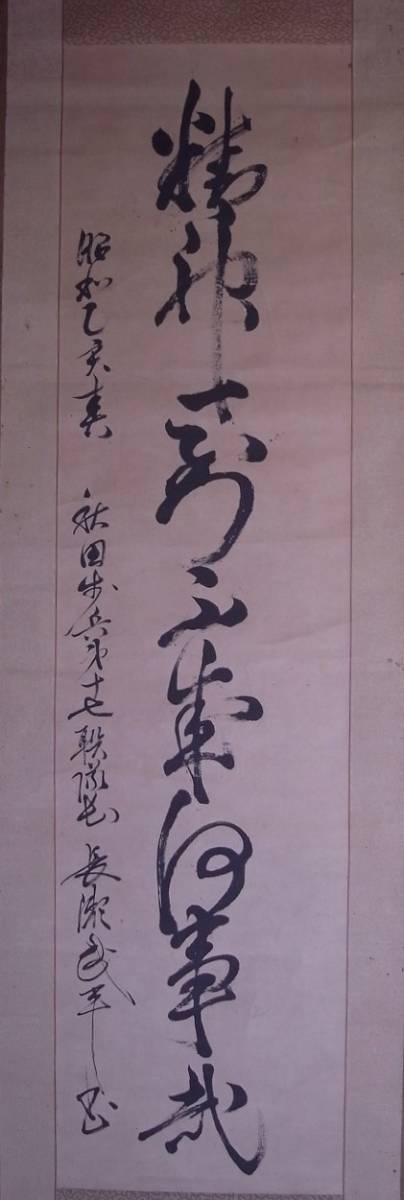 精神一到不成何事哉
昭和乙亥春 秋田歩兵第十七聯隊長 長瀬武平書